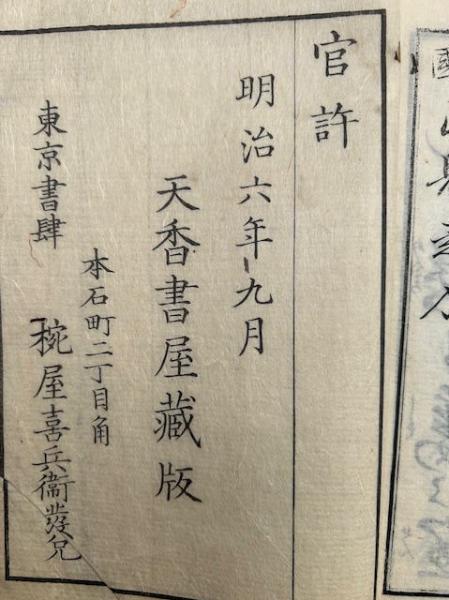 官許
明治六年九月
天香書屋藏版
本石町二丁目角
東京書肆 椀屋喜兵衞發兌